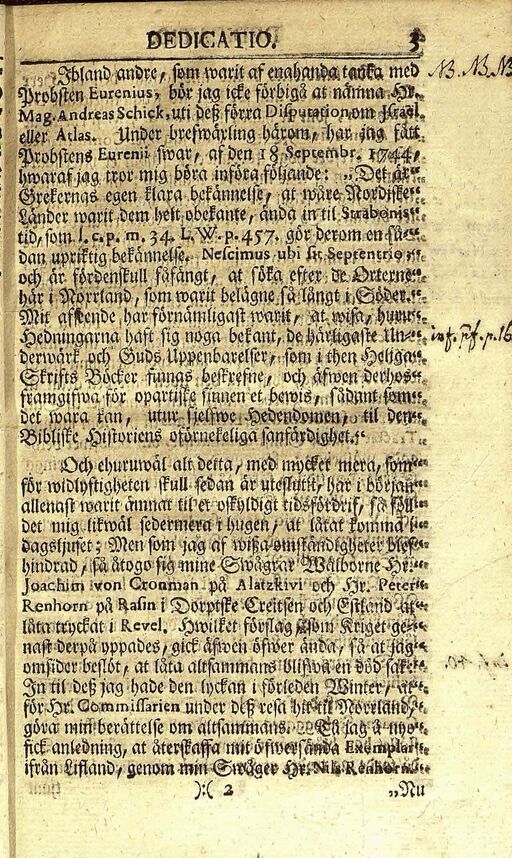 DEDICATIO. 5
Ibland andre, som warit af enahanda tanka med
Probsten Eurenius, bör jag icke förbigå at nämna Hr.
Mag. Andreas Schick, uti deß förra Disputation om Israel
eller Atlas. Under brefwäxling härom, har jag fått
Probstens Eurenii swar, af den 18 Septembr. 1744,
hwaraf jag tror mig böra införa följande: „Det är
Grekernas egen klara bekännelse, at wåre Nordiske
Länder warit dem helt obekante, ända in til Strabonis
tid, som l. c. p. m. 34. L. W. p. 457. gör derom en så-
dan upriktig bekännelse. Nescimus ubi sit Septentrio;
och är fördenskull fåfängt, at söka efter de Orterne
här i Norrland, som warit belägne så långt i Söder.
Mit afseende har förnämligast warit, at wisa, huru
Hedningarna haft sig noga bekant, de härligaste Un-
derwärk och Guds Uppenbarelser, som i then Heliga
Skrifts Böcker finnas beskrefne, och äfwen derhos
framgifwa för opartiske sinnen et bewis, sådant som
det wara kan, utur sjelfwe Hedendomen, til den
Bibliske Historiens oförnekeliga sanfärdighet.“
Och ehuruwäl alt detta, med mycket mera, som
för widlyftigheten skull sedan är uteslutit, har i början
allenast warit ämnat til et oskyldigt tidsfördrif, så föll
det mig likwäl sedermera i hugen, at låtat komma i
dagsljuset: Men som jag af wißa omständigheter blef
hindrad, så åtogo sig mine Swågrar Wälborne Hr.
Joachim von Cronman på Alatzkivi och Hr. Peter
Renhorn på Rasin i Dorptske Creitsen och Estland at
låta tryckat i Revel. Hwilket förslag, som Kriget ge-
nast derpå yppades, gick äfwen öfwer ända, så at jag
omsider beslöt, at låta altsammans blifwa en död sak.
In til deß jag hade den lyckan i förleden Winter, at
för Hr. Commissarien under deß resa hit til Norrland,
göra min berättelse om altsammans. Tå jag å nyo
fick anledning, at återskaffa mit öfwersända Exemplar
ifrån Lifland, genom min Swåger Hr. Nils Renhorn.
):( 2 „Nu
NB. NB. NB